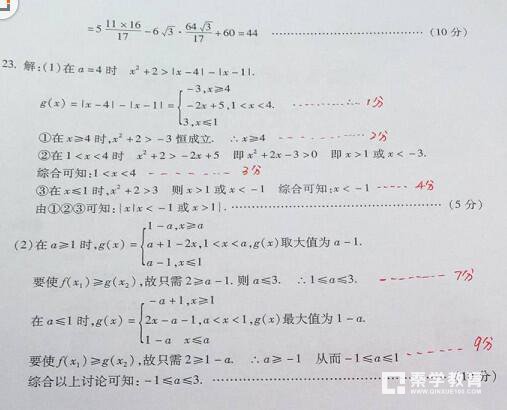 =5 11×16/17 −6√3 · 64√3/17 +60=44 ………………………… (10 分)
23. 解:(1)在 a=4 时 x²+2>|x−4|−|x−1|.
g(x)=|x−4|−|x−1|={−3,x≥4
−2x+5,1<x<4. 1分
3,x≤1
①在 x≥4 时,x²+2>−3 恒成立. ∴x≥4 2分
②在 1<x<4 时 x²+2>−2x+5 即 x²+2x−3>0 即 x>1 或 x<−3.
综合可知:1<x<4 3分
③在 x≤1 时,x²+2>3 则 x>1 或 x<−1 综合可知:x<−1 4分
由①②③可知:{x|x<−1 或 x>1}. ………………………… (5 分)
(2)在 a≥1 时,g(x)={1−a,x≥a
a+1−2x,1<x<a,g(x)取大值为 a−1.
a−1,x≤1
要使 f(x₁)≥g(x₂),故只需 2≥a−1. 则 a≤3. ∴1≤a≤3. 7分
在 a≤1 时,g(x)={−a+1,x≥1
2x−a−1,a<x<1,g(x)最大值为 1−a.
1−a x≤a
要使 f(x₁)≥g(x₂),故只需 2≥1−a. ∴a≥−1 从而−1≤a≤1 9分
综合以上讨论可知:−1≤a≤3. …………………………
秦学教育
WWW.QINXUE100.COM